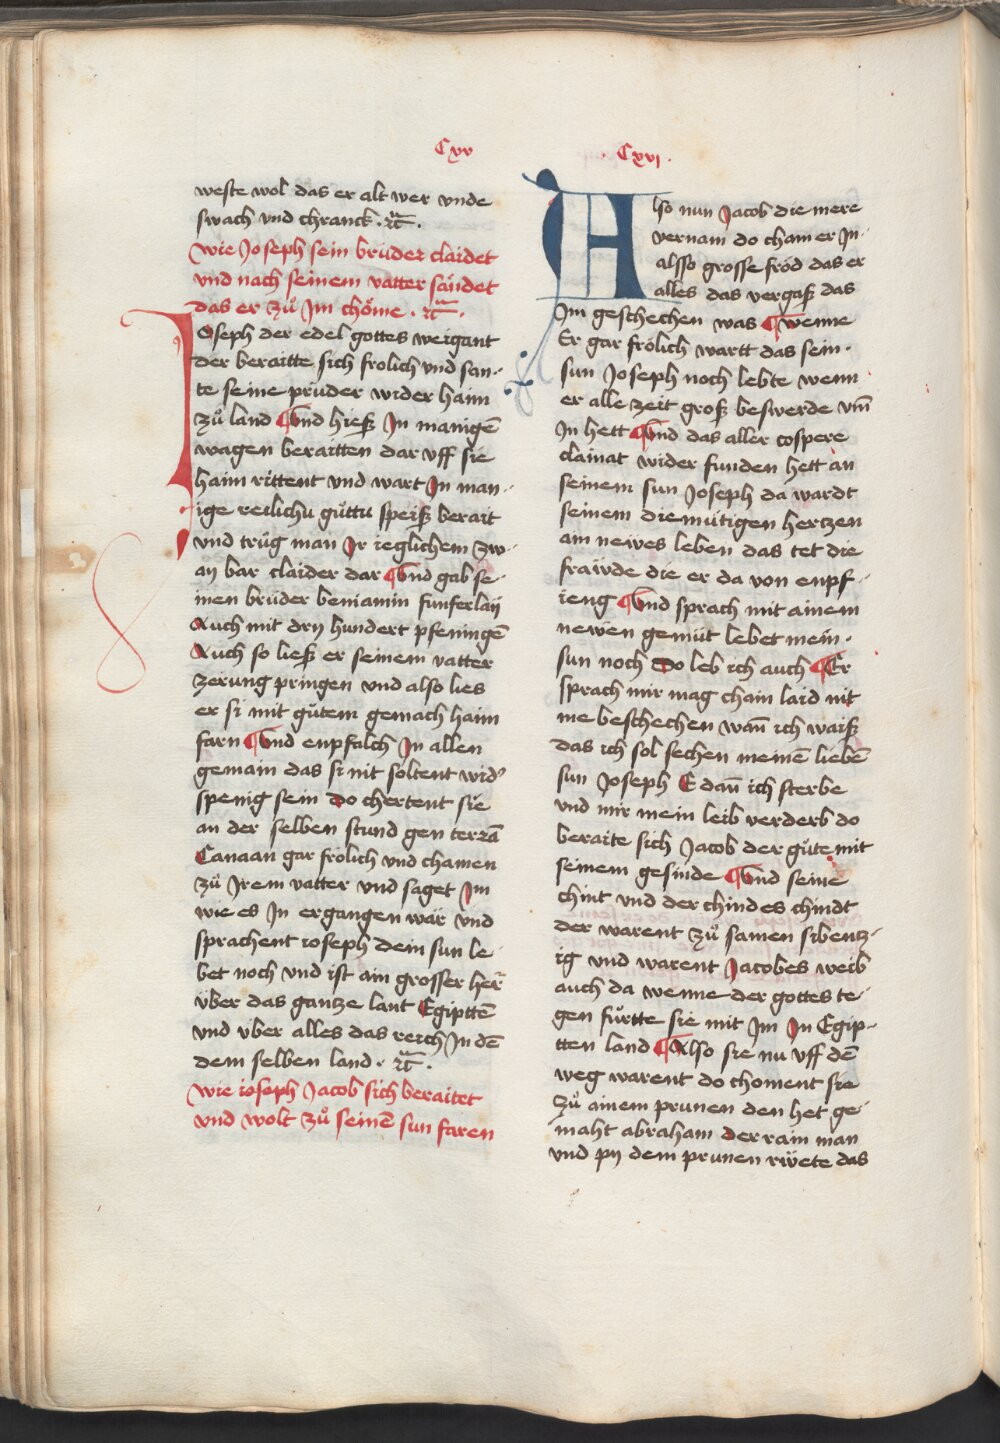 Cxv
weste wol das er alt wer vnde
swach vnd chranck · ꝛc̄ ·
wie Joseph sein brüder claidet
vnd nach seinem vatter sándet
das er zů Jm chöme · ꝛc̄ ·
Joseph der edel gottes weigant
der beraitte sich frolich vnd san-
te seine prüder wider haim
zů land Vnd hieß Jn manigē
wagen beraitten dar vff sie
haim rittent vnd wart Jn man-
ige reilichu gůttu speiß berait
vnd trůg man Jr ieglichem zw-
ay bar claider dar Vnd gab se-
inen brüder beniamin funferlaÿ
Auch mit drÿ hundert pfeningē
Auch so ließ er seinem vatter
zerung pringen vnd also lies
er si mit gůtem gemach haim
farn Vnd enpfalch Jn allen
gemain das si nit soltent wid᾽
spenig sein Do chertent sie
an der selben stund gen terrā
Canaan gar frolich vnd chamen
zů Jrem vatter vnd saget Jm
wie es Jn ergangen wär vnd
sprachent ioseph dein sun le-
bet noch vnd ist ain grosser her̄
über das gantze lant Egipttē
vnd vber alles das reich Jn dē
dem selben land · ꝛc̄ ·
wie ioseph Jacob sich beraitet
vnd wolt zů seinē sun faren
· Cxvi ·
Also nun Jacob die mere
vernam do cham er Jn-
alsso grosse fröd das er
alles das vergaß das
Jm geschechen was wenne
Er gar frölich wartt das sein-
sun Joseph noch lebte wenn
er alle zeit groß beswerde vm̄
Jn hett Vnd das aller cospere
clainat wider funden hett an
seinem sun Joseph da wardt
seinem diemütigen hertzen
ain newes leben das tet die
fraivde die er da von enpf-
ieng Vnd sprach mit ainem
newen gemüt lebet mein-
sun noch Do leb ich auch Er
sprach mir mag chain laid nit
me beschechen wañ ich waiß
das ich sol sechen meinē liebē
sun Joseph E dañ ich sterbe
vnd mir mein leib verderb do
beraite sich Jacob der gůte mit
seinem gesinde Vnd seine
chint vnd der chindes chindt
der warent zů samen sibentz-
ig vnd warent Jacobes weib
auch da wenne der gottes te-
gen fůrtte sie mit Jm Jn Egip-
tten land Also sie nu vff dē
weg warent do choment sie
zů ainem prunen den het ge-
maht abraham der rain man
vnd pÿ dem prunen růete das